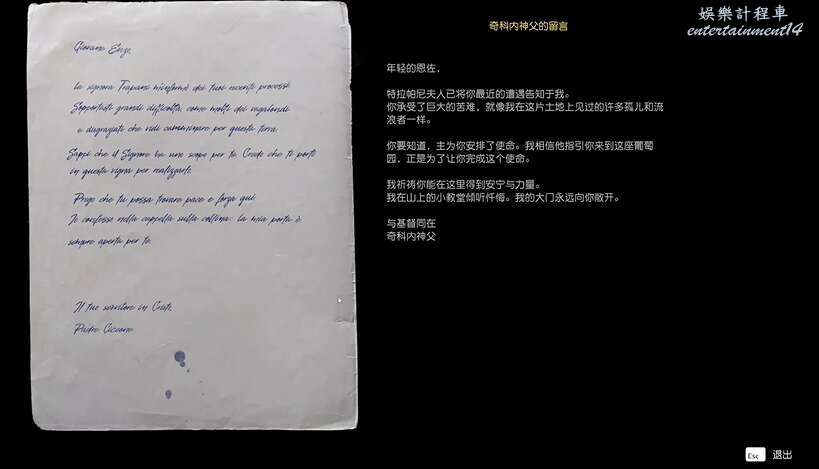 Giovane Enzo,
La signora Trapani m'informò dei tuoi recenti processi.
Sopportasti grandi difficoltà, come molti dei vagabondi
e disgraziati che vidi camminare per questa terra.
Sappi che il Signore ha uno scopo per te. Credo che ti portò
in questa vigna per realizzarlo.
Prego che tu possa trovare pace e forza qui.
Io confesso nella cappella sulla collina: la mia porta è
sempre aperta per te.
Il tuo servitore in Cristo,
Padre Ciccone
奇科内神父的留言
娱樂計程車
entertainment14
年轻的恩佐，
特拉帕尼夫人已将你最近的遭遇告知于我。
你承受了巨大的苦难，就像我在这片土地上见过的许多孤儿和流
浪者一样。
你要知道，主为你安排了使命。我相信他指引你来到这座葡萄
园，正是为了让你完成这个使命。
我祈祷你能在这里得到安宁与力量。
我在山上的小教堂倾听忏悔。我的大门永远向你敞开。
与基督同在
奇科内神父
Esc 退出